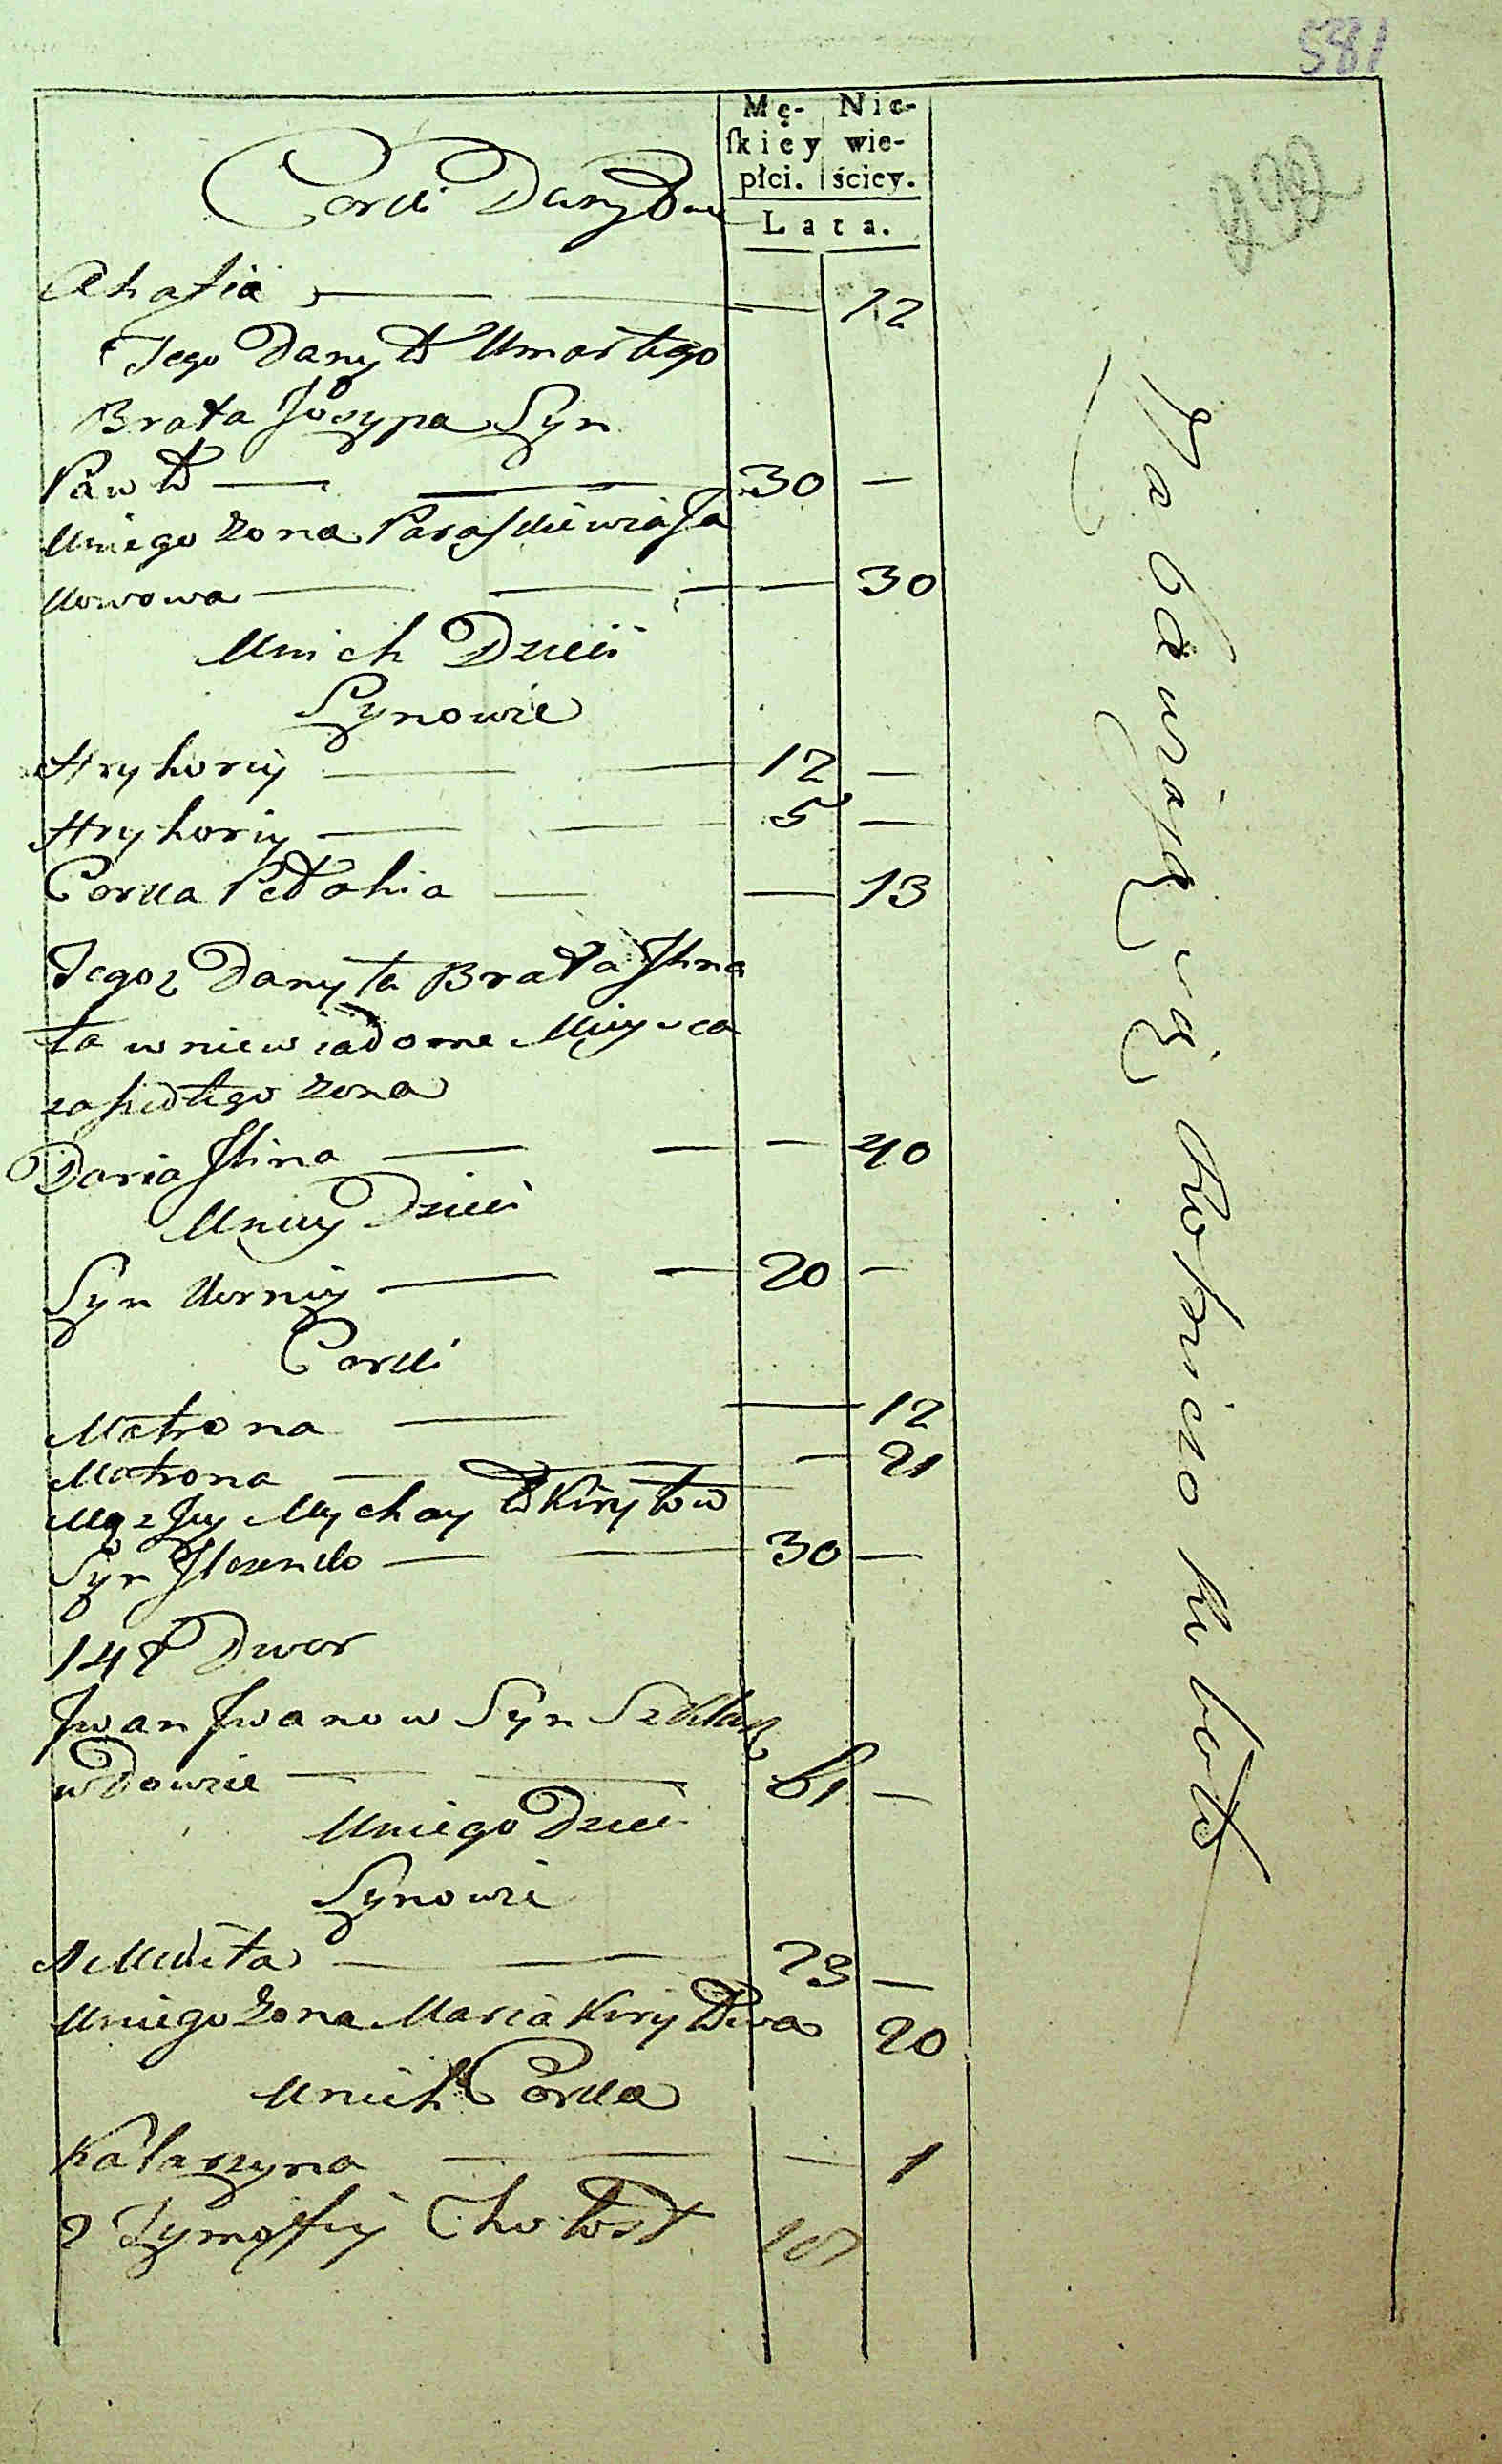 581
Mę- Nie-
ſkiey wie-
płci. ściey.
Lata.
Corki Danyła
Ahafia — — — 12
Tego Danyła Umarłego
Brata Josypa Syn
Pawło — — 30 —
Uniego Zona Paraskiewia Ja
kowowa — — — 30
Unich Dzieci
Synowie
Hryhorij — — 12 —
Hryhorij — — 5 —
Corka Pełahia — — 13
Tegoz Danyła Brata Ihna
ta w niewiadome Mieysca
zaszedłego Zona
Daria — — — 40
Uniey Dzieci
Syn Kornij — — 20 —
Corki
Matrona — — 12
Matrona — — 21
Mąz Jey Mychayło Kiryłow
Syn — — 30 —
148 Dwor
Iwan Iwanow Syn Szklar
wdowiec — — 61 —
Uniego Dzieci
Synowie
Mikita — — 23 —
Uniego Zona Maria Kiryłowa 20
Unich Corka
Katarzyna — — — 1
2 Tymofiy Chołost 18
Zabawiaią się Rolniczo Robotą